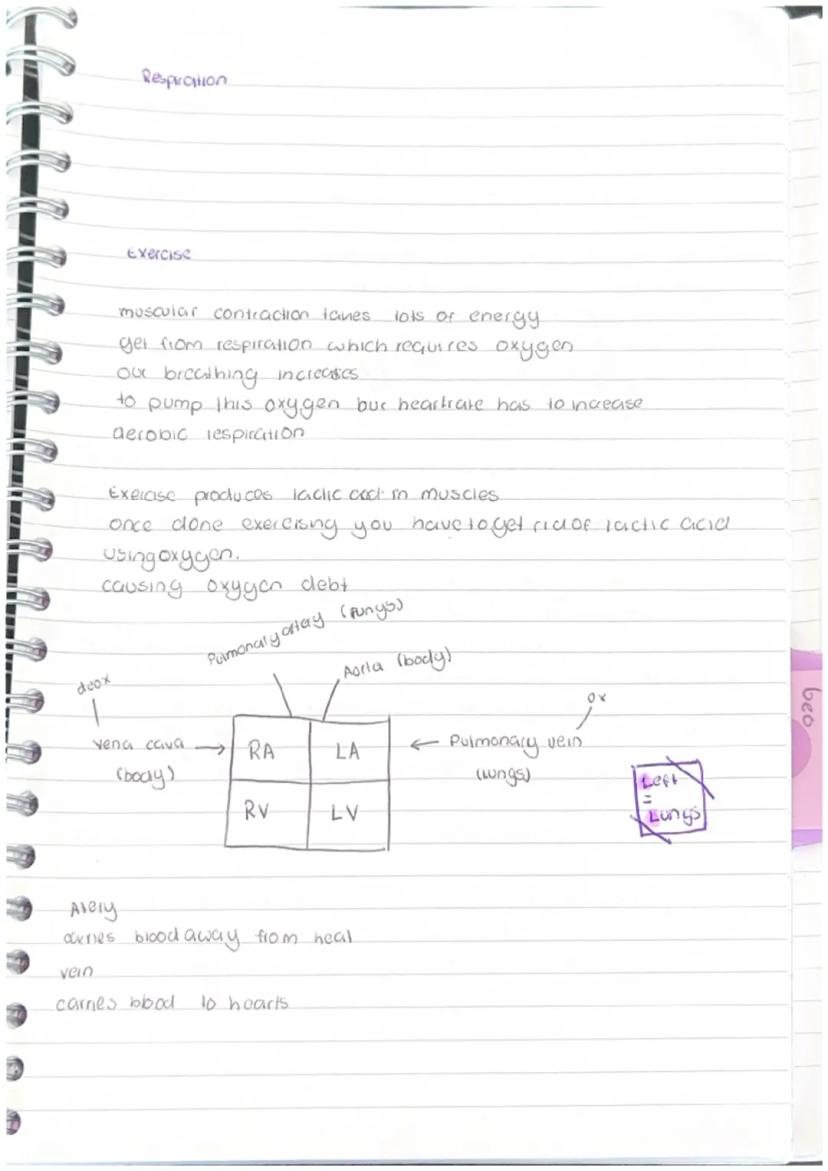 Respiration
Exercise
muscular contraction takes lots of energy
get from respiration which requires oxygen
our breathing increases
to pump this oxygen our heartrate has to increase
aerobic respiration
Exercise produces lactic acid in muscles
once done exercising you have to get rid of lactic acid
using oxygen.
causing oxygen debt
Pulmonary artery (lungs)
Aorta (body)
deox
ox
vena cava
(body)
RA
LA
Pulmonary vein
(lungs)
RV
LV
Left
=
Lungs
geo
Atery
carries blood away from heat
vein
carries blood to hearts